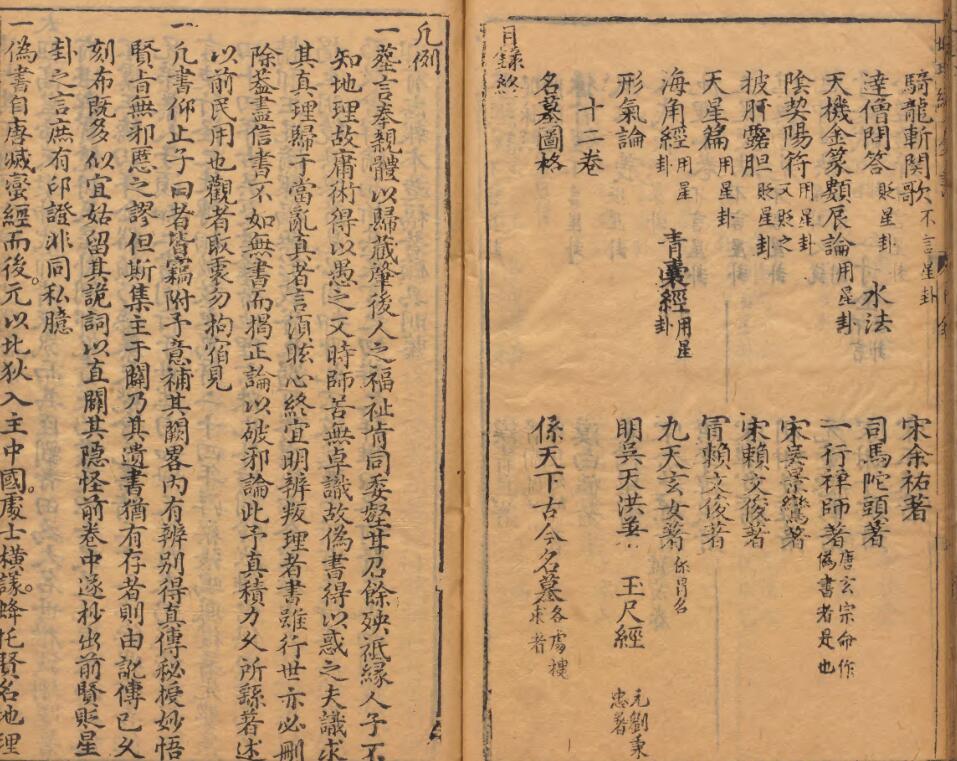 騎龍斬関歌 不言星卦 宋余祐著
達僧問答 貶星卦 水法 司馬陀頭著
天機金篆 顆辰論 用星卦 一行禅師著 唐玄宗命作偽書者是也
陰契陽符 用星卦又貶之 宋吳景鸞著
披肝露胆 貶星卦 宋賴文俊著
天星篇 用星卦 青囊經 用星卦 冐賴文俊著
海角經 用星卦 九天玄女著 係冐名
形氣論 明吳天洪著 玉尺經 元劉秉忠著
十二卷
名墓圖格 係天下古今名墓 各處摟求者
目錄終
凡例
一塟言奉親體以歸藏肇後人之福祉肯同委壑甘召餘殃祗緣人子不
知地理故庸術得以愚之又時師苦無卓識故偽書得以惑之夫識求
其真理歸于當亂真者言須眩心終宜明辨叛理者書雖行世亦必刪
除葢盡信書不如無書而揭正論以破邪論此予真積力久所繇著述
以前民用也觀者取裏勿拘宿見
一凢書仰止子曰者皆竊附予意補其闕畧内有辨别得真傳秘授妙悟
賢㫖無邪慝之謬但斯集主于闢乃其遺書猶有存者則由訛傳已久
刻布既多似宜姑留其詭詞以直闢其隐怪前卷中遂抄出前賢貶星
卦之言庶有印證非同私臆
一偽書自唐滅蠻經而後元以北狄入主中國處士橫議蜂托賢名地理